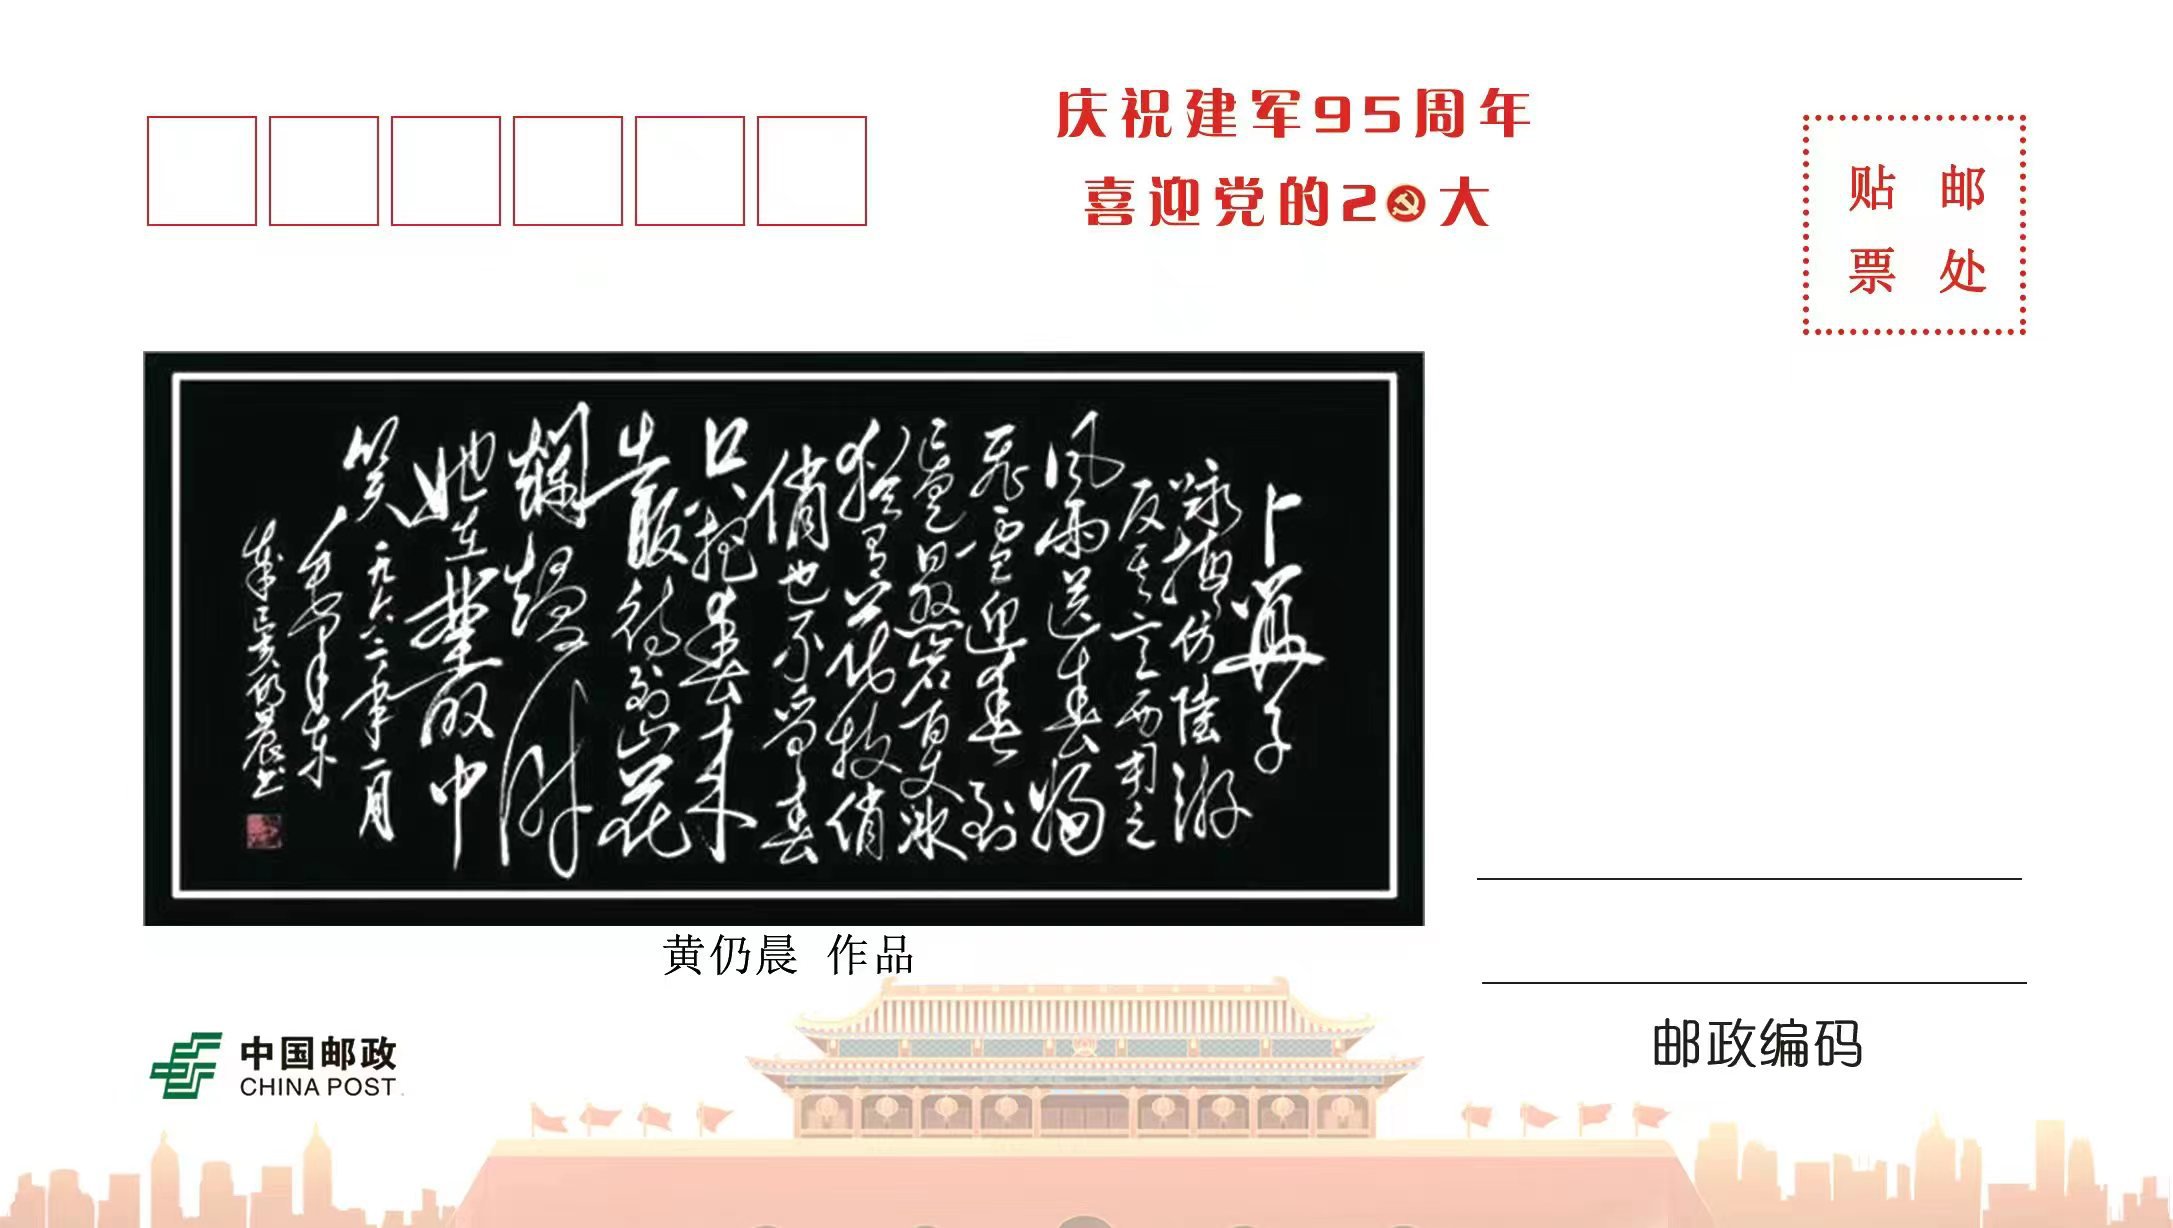 庆祝建军95周年
喜迎党的2大
贴邮
票处
卜算子
咏梅仿陆游
反其意而用之
风雨送春归
飞雪迎春到
已是悬岩百丈冰
犹有花枝俏
俏也不争春
只把春来
报待到山花
烂熳时
她在丛中
笑一九六二年一月
毛泽东
仍晨书
黄仍晨 作品
中国邮政
CHINA POST
邮政编码